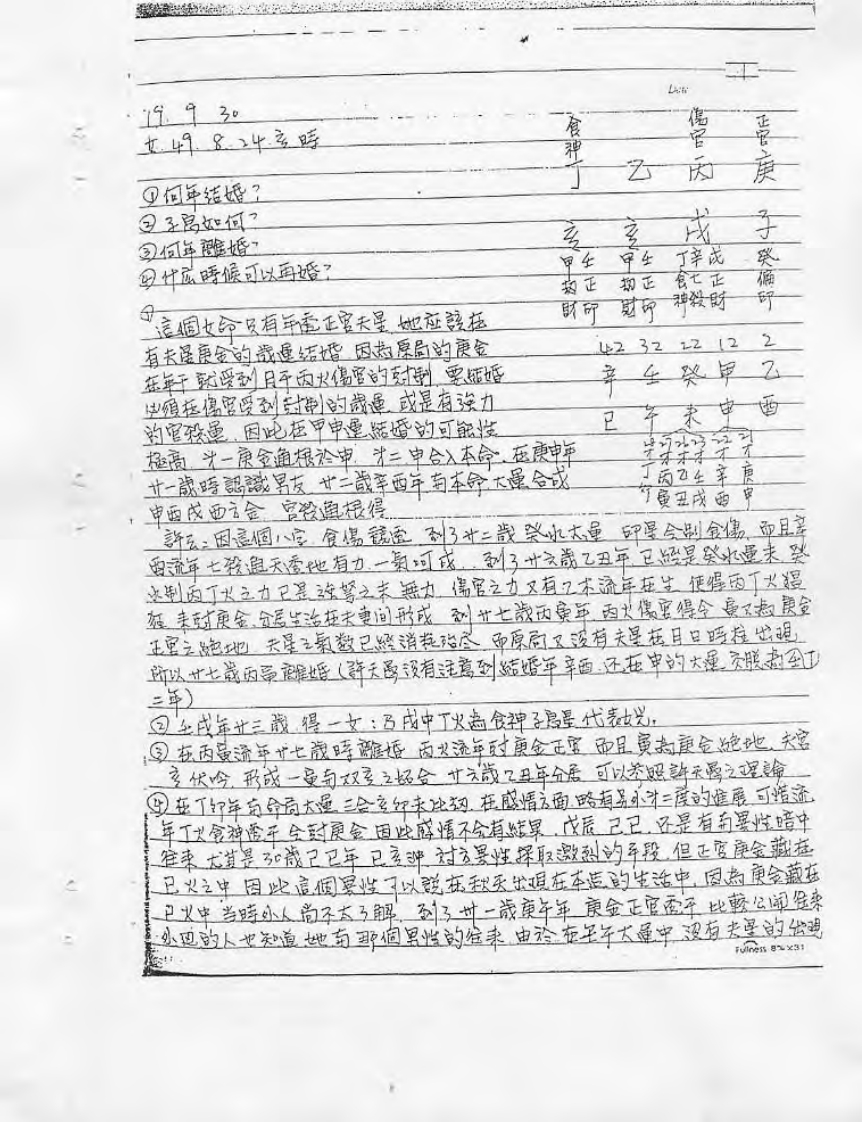 19. 9 30
女.49. 8. 24.亥時
食神 傷官 正官
丁 乙 丙 庚
①何年結婚?
②子息如何?
③何年離婚?
④什麼時候可以再婚?
亥 亥 戌 子
甲壬 甲壬 丁辛戊 癸
劫財 正印 劫財 正印 食神 七殺 正財 偏印
42 32 22 12 2
辛 壬 癸 甲 乙
巳 午 未 申 酉
丁 丙 乙 壬 辛 庚
寅 丑 戌 酉 申
① 這個女命只有年透正官夫星,她应該在
有夫星庚金的歲運結婚,因為原局的庚金
在年干就受到月干丙火傷官的尅制,要結婚
必須在傷官受到尅制的歲運,或是有強力
的官殺運,因此在甲申運結婚的可能性
極高,才一庚金通根於申,才二申合入本命,在庚申年
廿一歲時認識男友,廿二歲辛酉年與本命大運合成
申酉戌西方金,官殺通根得
許云:因這個八字,食傷競透,到了廿二歲癸水大運,印星合制食傷,而且辛
酉流年七殺通天透地有力,一氣呵成,到了廿六歲乙丑年,已經是癸水運末,癸
水制丙丁火之力已是強弩之末無力,傷官之力又有乙木流年在生,使得丙丁火猖
狂,來尅庚金,分居生活在夫妻間形成,到廿七歲丙寅年,丙火傷官得令,寅又為庚金
正官之絕地,夫星之氣数已經消耗殆尽,而原局又沒有夫星在月日時柱出現
所以廿七歲丙寅離婚(許天學沒有注意到結婚年辛酉,还在申的大運,交脫為
二年)
②壬戌年廿三歲,得一女:乃戌中丁火為食神子息星代表女兒。
③在丙寅流年廿七歲時離婚,丙火流年尅庚金正官,而且寅為庚金絕地,夫宮
亥伏吟,形成一寅与双亥之妬合,廿六歲乙丑年分居,可以參照許天學之理論
④在丁卯年与命局大運三合亥卯未比劫,在感情方面,略有另外才二度的進展,可惜流
年丁火食神透干,合尅庚金,因此感情不会有結果,戊辰、己巳,还是有与異性暗中
往來,尤其是30歲己巳年,巳亥冲,対方異性採取激烈的手段,但正官庚金藏在
巳火之中,因此這個異性可以說在秋天出現在本造的生活中,因為庚金藏在
巳火中,当時外人尚不太了解,到了卅一歲庚午年,庚金正官透干,比較公開往來
外面的人也知道她与那個男性的往來,由於在壬午大運中,沒有夫星的出現
Fullness 8½ x31